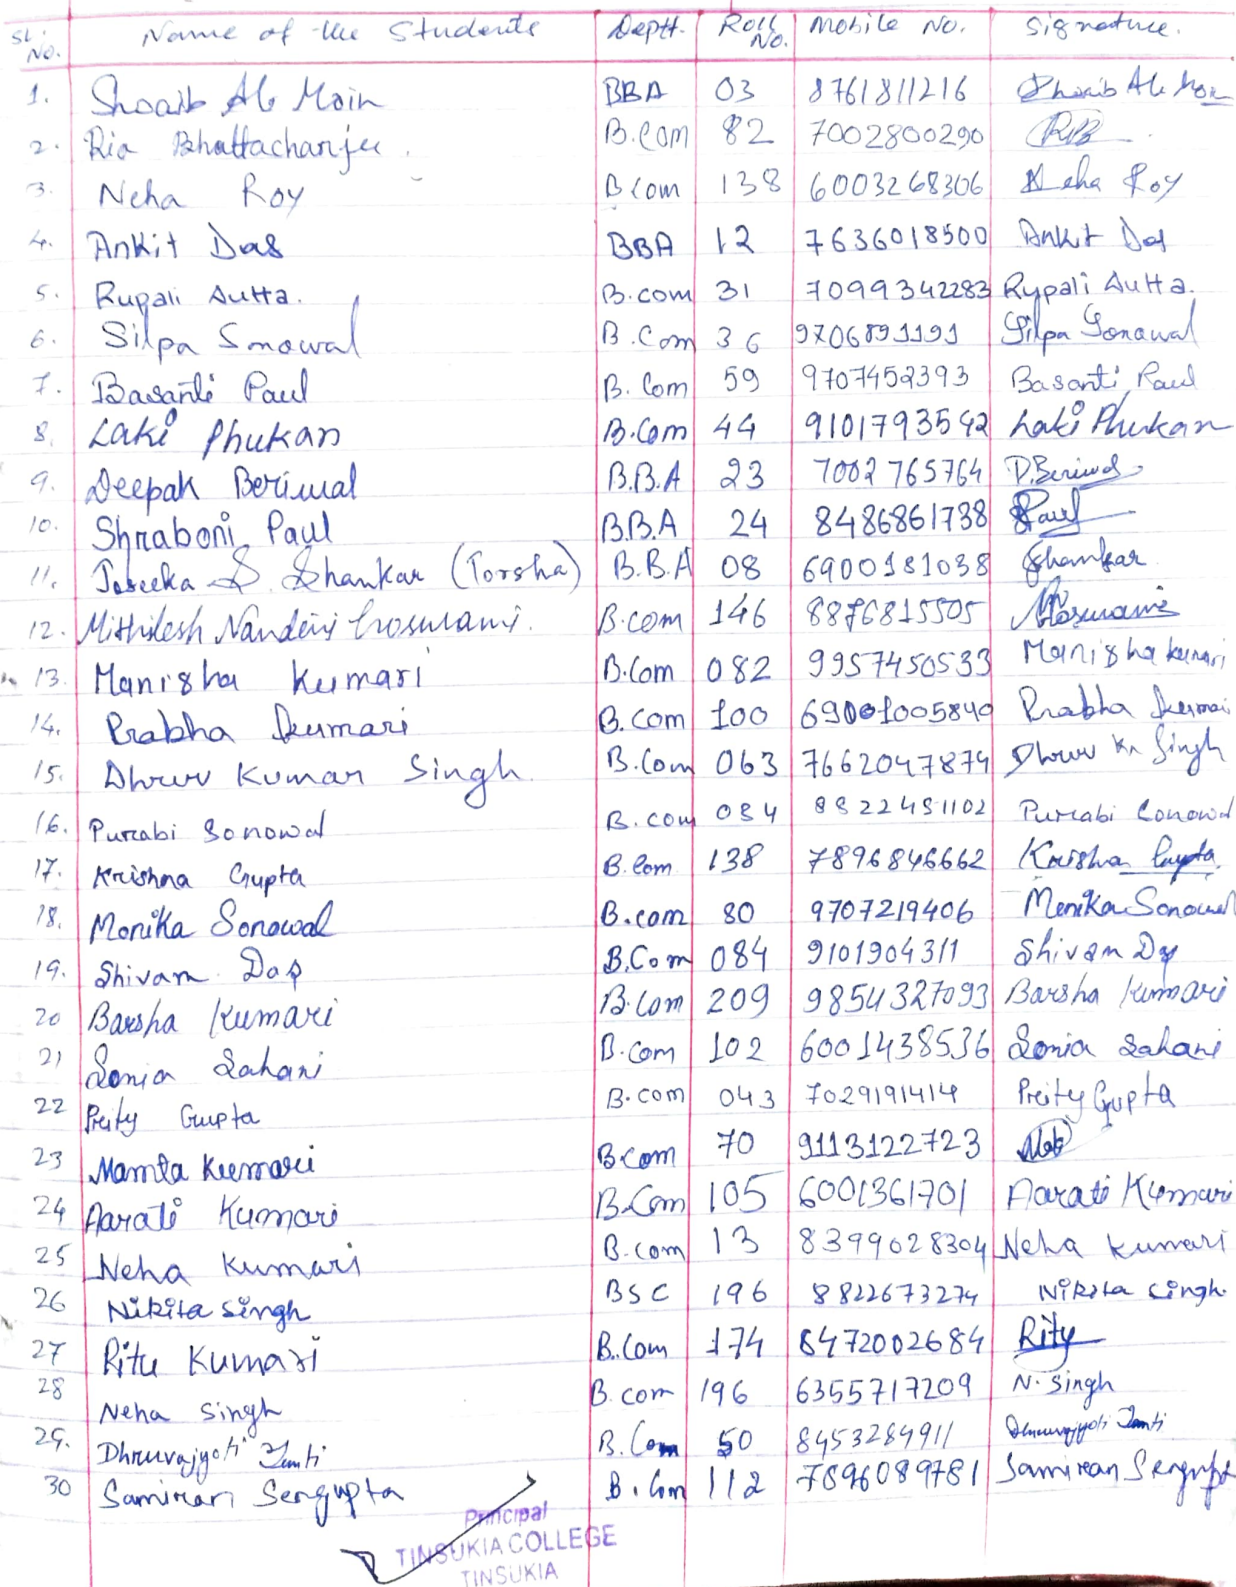 Sl. No. Name of the Students Deptt. Roll No. Mobile No. Signature.
1. Shoaib Ali Moin BBA 03 8761811216 Shoaib Ali Moin
2. Ria Bhattacharjee. B.Com 82 7002800290 RB
3. Neha Roy B Com 138 6003268306 Neha Roy
4. Ankit Das BBA 12 7636018500 Ankit Das
5. Rupali Dutta. B.com 31 7099342283 Rupali Dutta.
6. Silpa Sonowal B.Com 36 9706891191 Silpa Sonowal
7. Basanti Paul B.Com 59 9707452393 Basanti Paul
8. Laki Phukan B.Com 44 9101793542 Laki Phukan
9. Deepak Beriwal B.B.A 23 7002765764 D.Beriwal
10. Shraboni Paul B.B.A 24 8486861738 Paul
11. S. Shankar (Torsha) B.B.A 08 6900181038 Shankar
12. Mithilesh Nandini Goswami. B.com 146 8876815505 Goswami
13. Manisha Kumari B.Com 082 9957450533 Manisha Kumari
14. Prabha Kumari B.Com 100 69001005840 Prabha Kumari
15. Dhruv Kumar Singh. B.Com 063 7662047874 Dhruv Kr Singh
16. Purabi Sonowal B.com 084 8822451102 Purabi Sonowal
17. Krishna Gupta B.Com 138 7896846662 Krishna Gupta.
18. Monika Sonowal B.com 80 9707219406 Monika Sonowal
19. Shivam Das B.Com 084 9101904311 Shivam Das
20 Barsha Kumari B.Com 209 9854327093 Barsha Kumari
21 Sonia Sahani B.Com 102 6001438536 Sonia Sahani
22 Preity Gupta B.com 043 7029191414 Preity Gupta
23 Mamta Kumari B.Com 70 9113122723
24 Aarati Kumari B.Com 105 6001361701 Aarati Kumari
25 Neha Kumari B.com 13 8399028304 Neha Kumari
26 Nikita Singh BSC 196 8822673274 Nikita Singh.
27 Ritu Kumari B.Com 174 8472002684 Ritu
28 Neha Singh B.com 196 6355717209 N. Singh
29. Dhruvajyoti Tanti B.Com 50 8453284911 Dhruvajyoti Tanti
30 Samiran Sengupta B.Com 112 7896089781 Samiran Sengupta
Principal
TINSUKIA COLLEGE
TINSUKIA